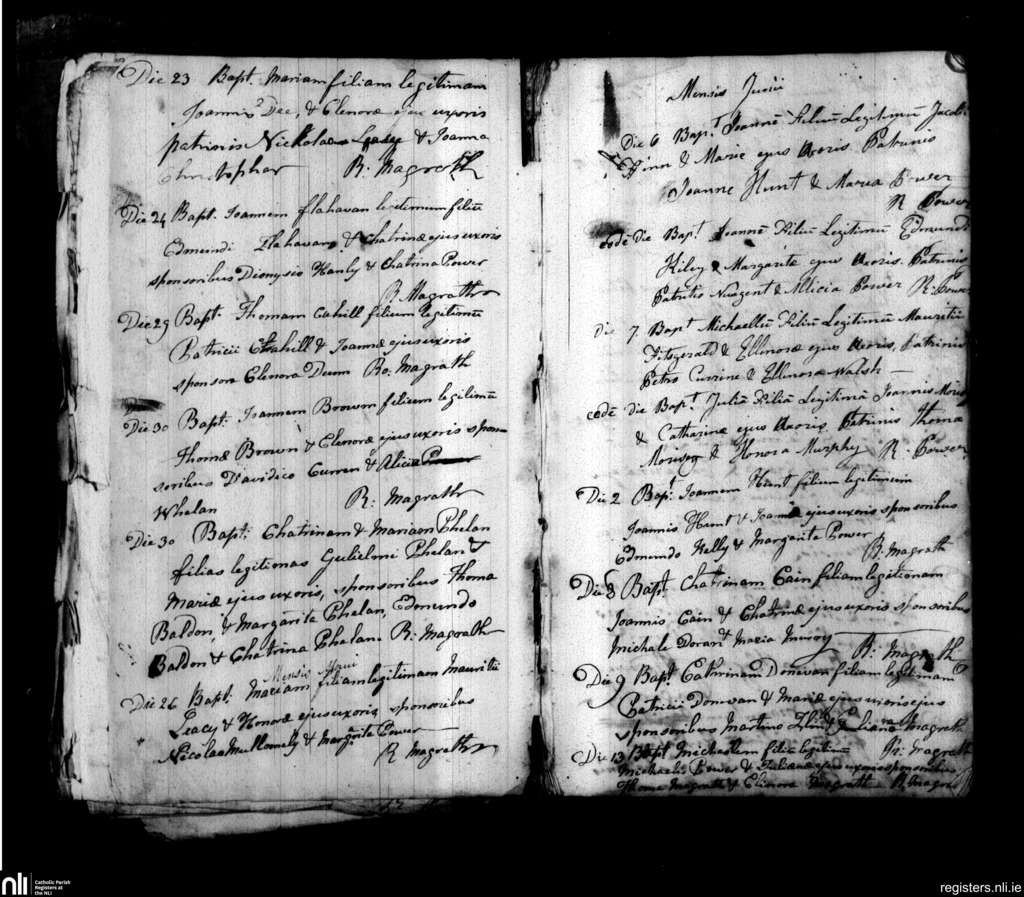 Die 23 Bapt. Mariam filiam legitimam
Joannis Dee, & Elenoræ ejus uxoris
patrinis Nickolao & Joanna
Christopher R. Magrath
Die 24 Bapt. Joannem flahavan legitimum filiū
Edmundi Flahavan & Chatrinæ ejus uxoris
sponsoribus Dionysio Hanly & Chatrina Power
R. Magrath
Die 29 Bapt. Thomam Cahill filium legitimū
Patricii Cahill & Joannæ ejus uxoris
sponsore Elenora Dunn Ro. Magrath
Die 30 Bapt. Joannem Brown filium legitimū
Thomæ Brown & Elenoræ ejus uxoris spon-
soribus Davidico Curren & Alicia
Whelan R. Magrath
Die 30 Bapt. Chatrinam & Mariam Phelan
filias legitimas Gulielmi Phelan &
Mariæ ejus uxoris, sponsoribus Thoma
Baldon, & Margarita Phelan, Edmundo
Baldon & Chatrina Phelan. R. Magrath
Mensis
Die 26 Bapt. Mariam filiam legitimam Mauritii
Leacy & Honoræ ejus uxoris sponsoribus
Nicolao & Margrite Power
R Magrath
Mensis Junii
Die 6 Bapt. Joannē Filiū Legitimū Jacobi
& Mariæ ejus Uxoris Patrinis
Joanne Hunt & Maria Power
R Power
eodē die Bapt. Joannē Filiū Legitimū Edmundi
Hiley & Margaritæ ejus Uxoris. Patrinis
Patritio Nuagent & Allicia Power R. Power
die 7. Bapt Michaellū Filiū Legitimū Mauritii
Fitzgerald & Ellinoræ ejus Uxoris, Patrinis
Petro Currine & Ellinoræ Walsh
eodē die Bapt. Juliā Filiā Legitimā Joannis
& Catharinæ ejus Uxoris Patrinis Thoma
& Honora Murphy R. Power
Die 2 Bapt. Joannem Hunt filium legitimum
Joannis Hunt & Joannæ ejus uxoris sponsoribus
Edmundo Kelly & Margarite Power
R. Magrath
Die 8 Bapt. Chatrinam Cain filiam legitimam
Joannis Cain & Chatrinæ ejus uxoris sponsoribus
Michale & Maria
R. Magrath
Die 9 Bapt Cathrinam Donevan filiam legitimam
Patricii Donevan & Mariæ ejus uxoris ejus
sponsoribus Martino & Magrath
R. Magrath
Die 13 Bapt Michaelem filiū legitimū
Michaeli Power & Julianæ ejus uxoris sponsoribus
Thoma Magrath & Elinora Magrath R Magrath
nli
Catholic Parish
Registers at
the NLI
registers.nli.ie